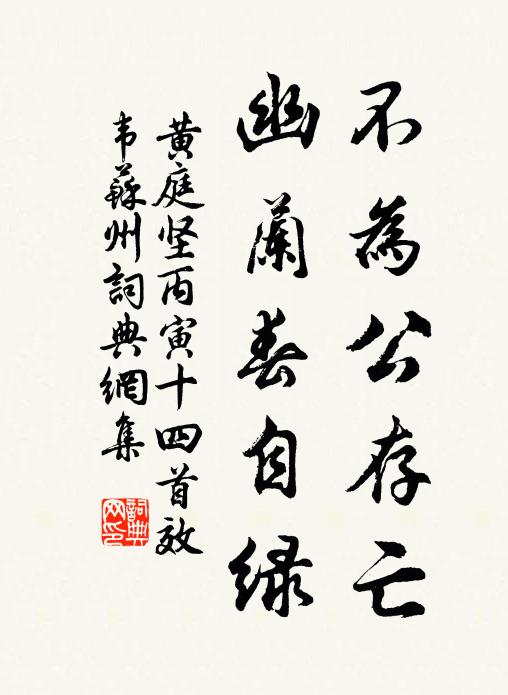 不為公存亡
幽蘭春自绿
黄庭坚丙寅十四首效
韦蘇州詞典網集
詞典
网印